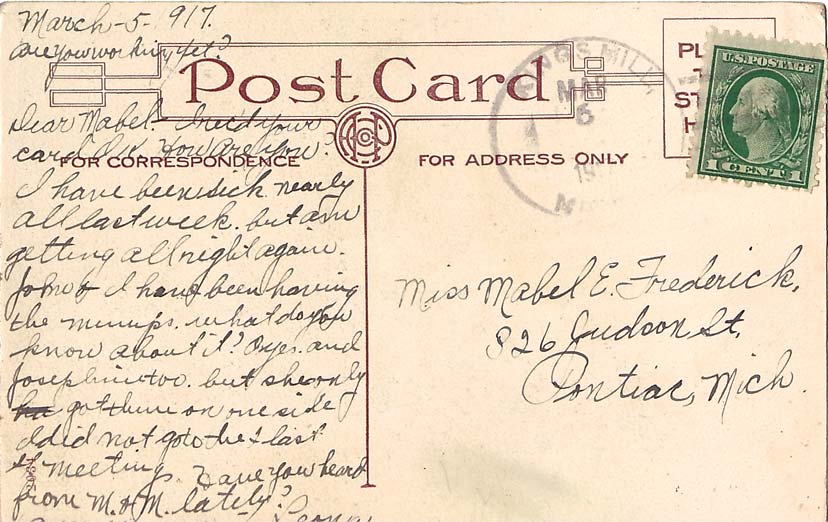 March-5-917.
are you working yet?
Post Card
Dear Mabel- I rec'd your
card O.K. How are you?
FOR CORRESPONDENCE
I have been sick nearly
all last week. but am
getting all right again.
John & I have been having
the mumps. what do you
know about it? O yes. and
Josephine too. but she only
got them on one side
I did not go to the last
meeting. Have you heard
from M. & M. lately?
Leona
FOR ADDRESS ONLY
KINGS MILL
MAR
6
PL
ST
H
U.S. POSTAGE
1 CENT 1
Miss Mabel E. Frederick,
826 Judson St,
Pontiac, Mich.